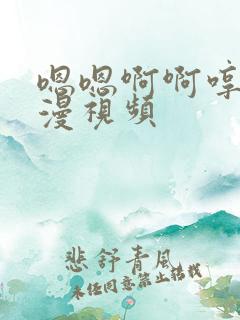 嗯嗯啊啊哼
漫視頻
悲舒青風
未经同意禁止转载